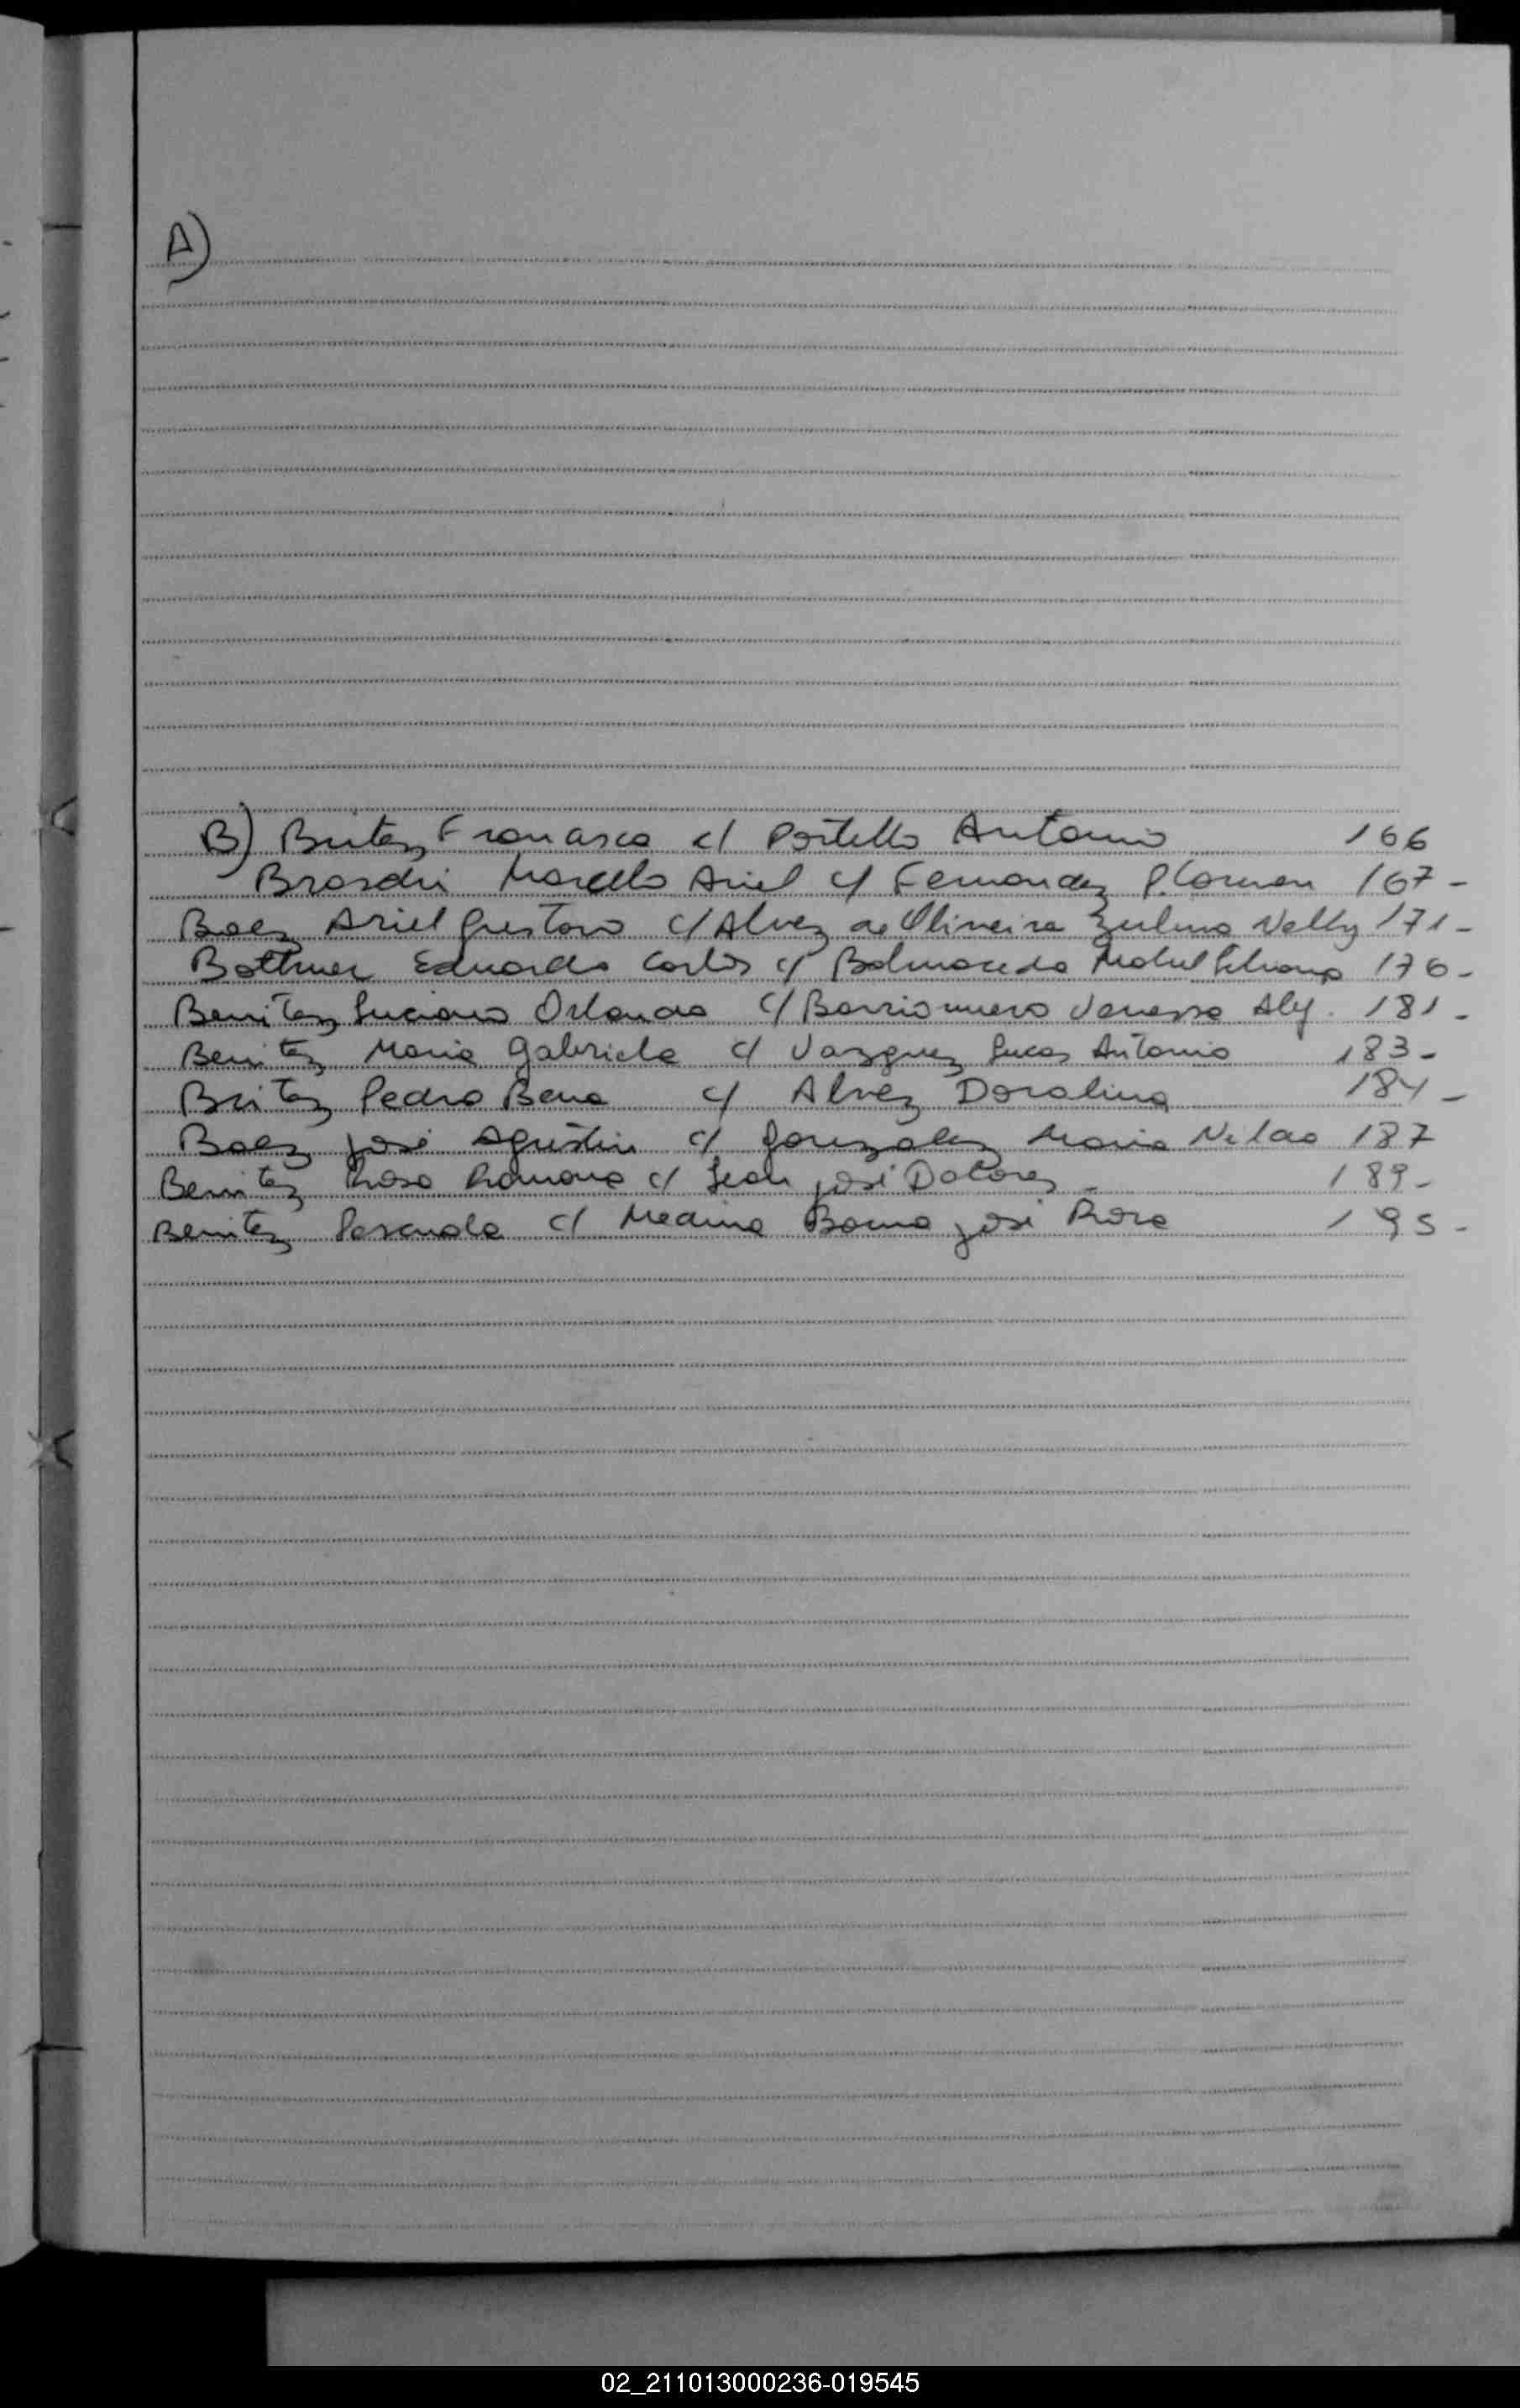 A)
B) Britez Francisco c/ Portillo Antonio 166
Broschi Marcelo Ariel c/ Fernandez P. Carmen 167-
Baez Ariel Gustavo c/ Alvez de Oliveira Zulma Nelly 171-
Bottner Eduardo Carlos c/ Balmaceda Mabel Liliana 176-
Benitez Luciano Orlando c/ Barrionuevo Vanessa Alej. 181-
Benitez Maria Gabriela c/ Vazquez Lucas Antonio 183-
Britez Pedro c/ Alvez Doralina 184-
Baez José Agustin c/ Gonzalez Maria Nilda 187
Benitez Rosa Ramona c/ José Dolores - 189-
Benitez Pascuala c/ Medina José Rosa 195-
02_211013000236-019545